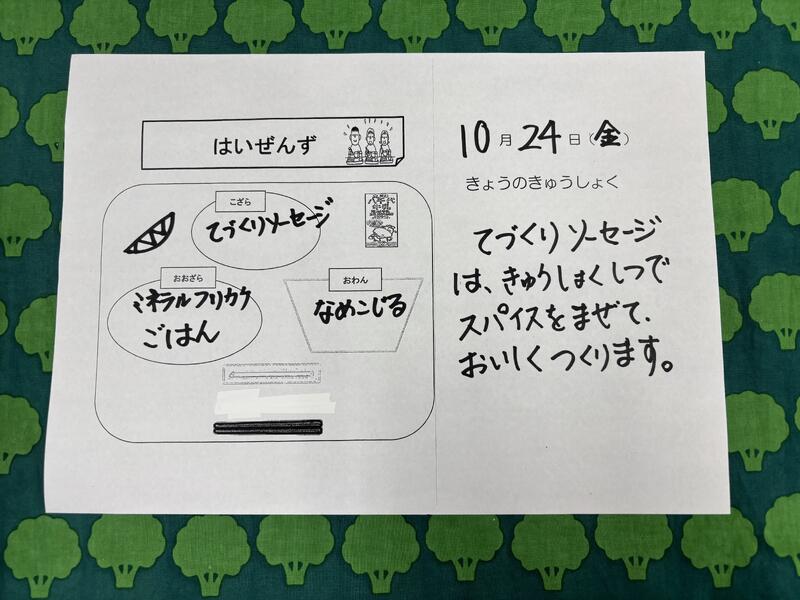 はいぜんず
こざら
てづくりソーセージ
おおざら
ミネラルフリカケ
ごはん
おわん
なめこじる
10月24日(金)
きょうのきゅうしょく
てづくりソーセージ
は、きゅうしょくしつで
スパイスをまぜて、
おいしくつくります。